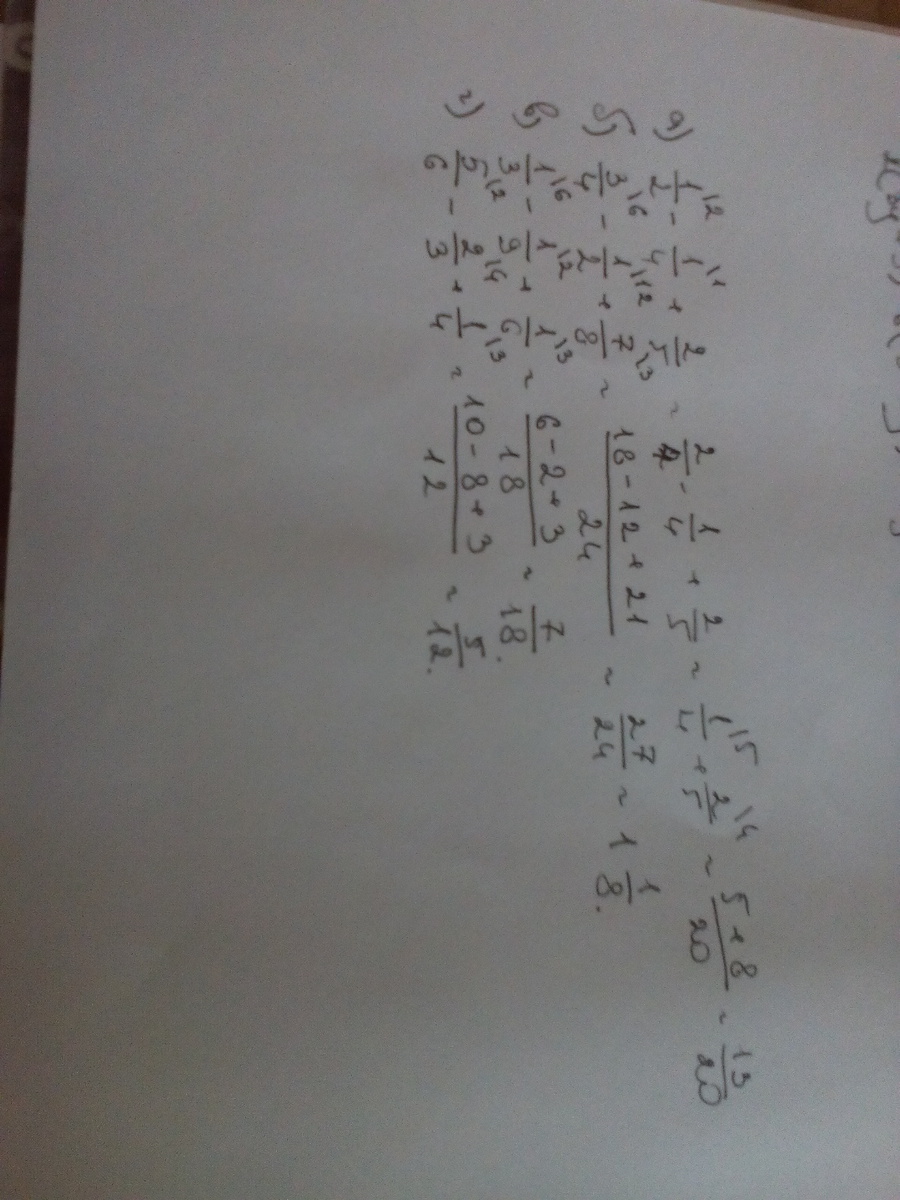 а) 1/2 \2 - 1/4 \1 + 2/5 = 2/4 - 1/4 + 2/5 = 1/4 \5 + 2/5 \4 = 5+8/20 = 13/20
б) 3/4 \6 - 1/2 \12 + 7/8 \3 = 18-12+21/24 = 27/24 = 1 1/8.
в) 1/3 \6 - 1/9 \2 + 1/6 \3 = 6-2+3/18 = 7/18.
г) 5/6 \2 - 2/3 \4 + 1/4 \3 = 10-8+3/12 = 5/12.